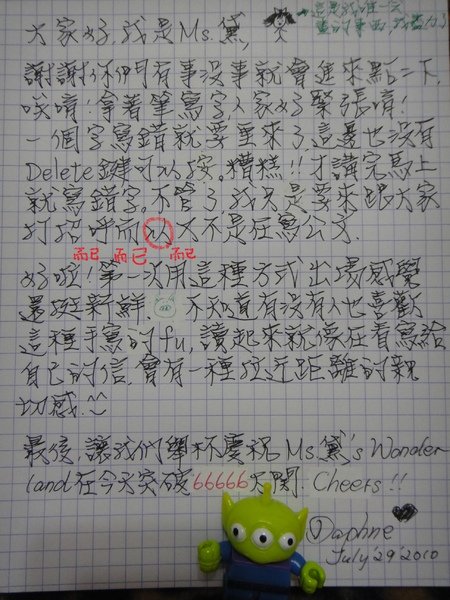 大家好,我是Ms.黛,
謝謝你們有事沒事就會進來點一下,
唉唷!拿著筆寫字,人家好緊張唷!
一個字寫錯就要重來了,這邊也沒有
Delete鍵可以按。糟糕!!才講完馬上
就寫錯字。不管了,我只是要來跟大家
打招呼而以,又不是在寫公文。
而已 而已 而已
好啦!第一次用這種方式出場感覺
還挺新鮮。不知道有沒有人也喜歡
這種手寫的fu,讀起來就像在看寫給
自己的信,會有一種拉近距離的親
切感.^^
最後,讓我們舉杯慶祝Ms.黛's Wonder
land在今天突破66666大關. Cheers!!
Daphne
July '29 '2010